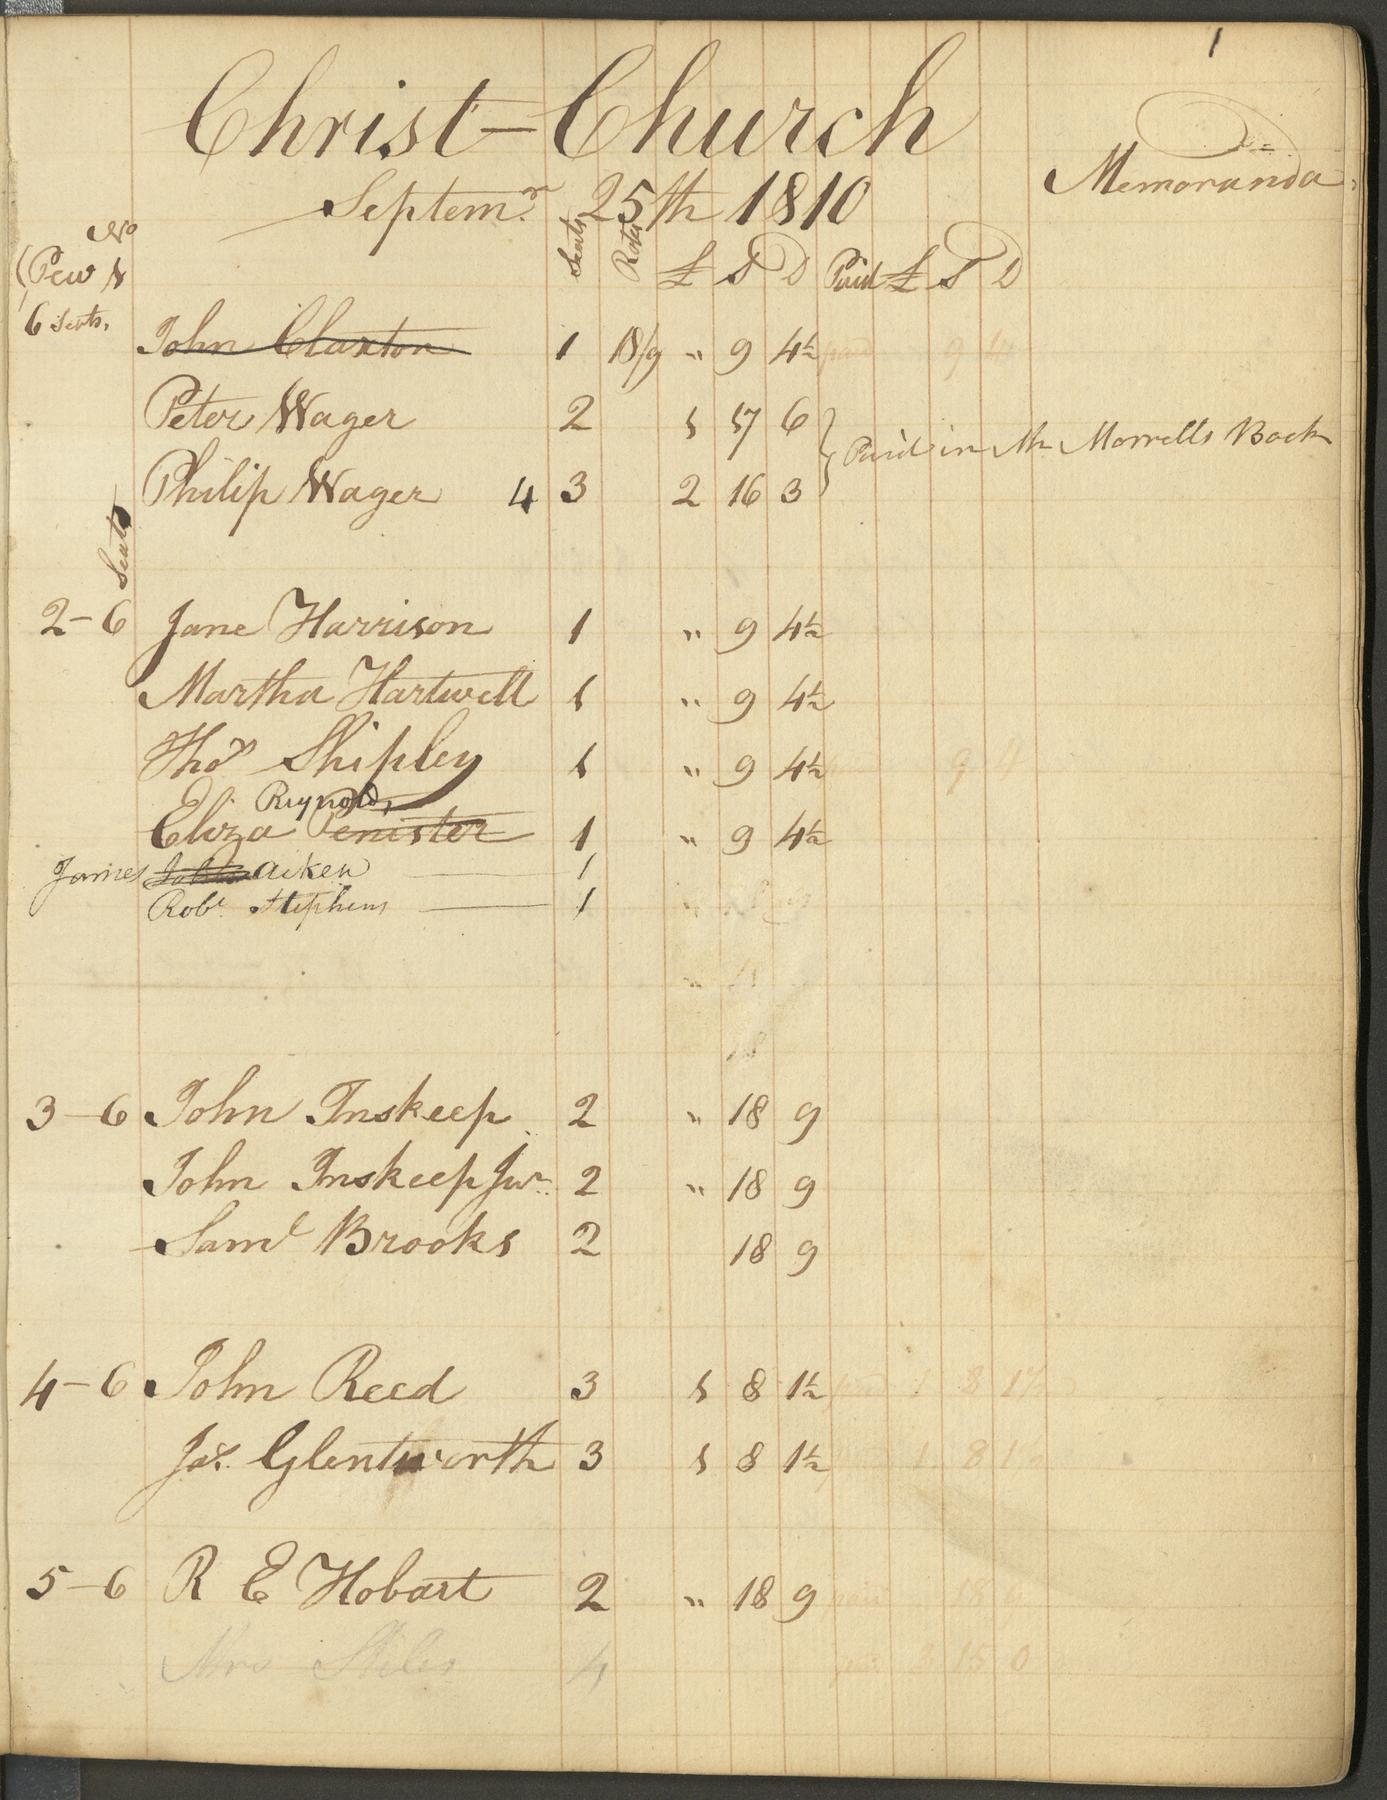 1
Christ-Church
Memoranda
Septemr 25th 1810
No
Pew 1 Seats Rate £ S D Paid £ S D
6 Seats,
John Claxton 1 18/9 " 9 4½ paid 9 4
Peter Wager 2 1 17 6
Paid in Mr Morrells Book
Philip Wager 4 3 2 16 3
Seats
2-6 Jane Harrison 1 " 9 4½
Martha Hartwell 1 " 9 4½
Thos Shipley 1 " 9 4½ 9 4
Reynolds
Eliza Penister 1 " 9 4½
James John Aiken 1
Robt Stephens 1 "
"
18
3-6 John Inskeep 2 " 18 9
John Inskeep Junr 2 " 18 9
Saml Brooks 2 18 9
4-6 John Reed 3 1 8 1½ paid 1 8 1½
Jas. Glentworth 3 1 8 1½ 1 8 1
5-6 R E Hobart 2 " 18 9 paid 18
Mrs Stiles 4 15 0